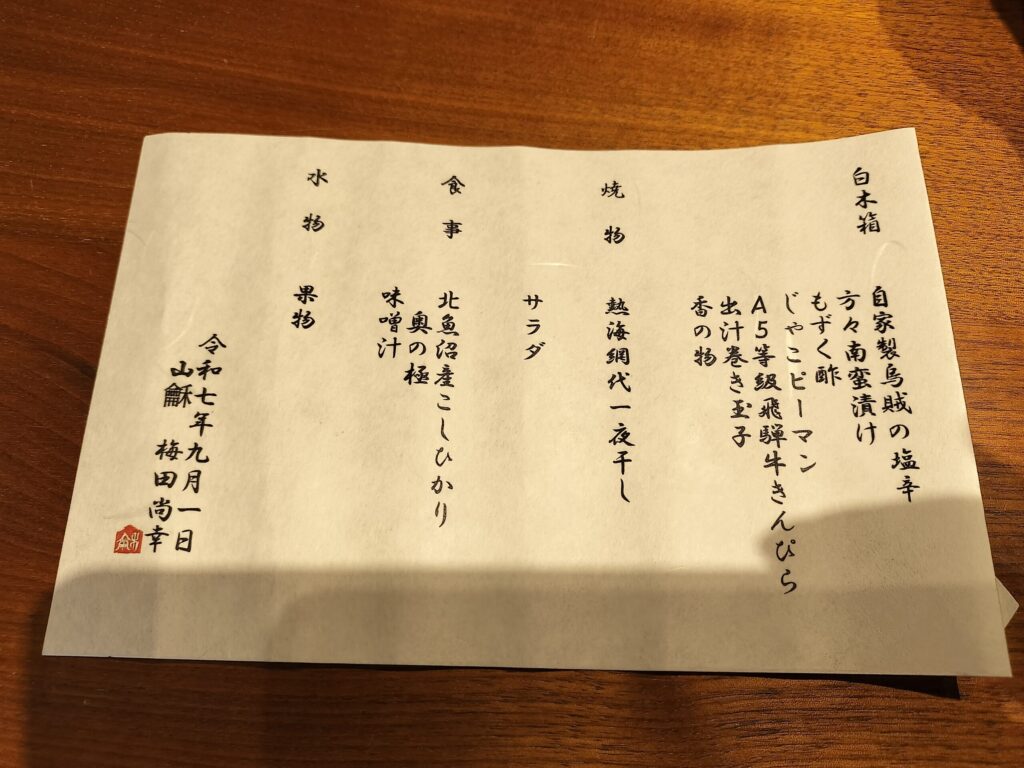 白木箱
自家製烏賊の塩辛
方々南蛮漬け
もずく酢
じゃこピーマン
A5等級飛騨牛きんぴら
出汁巻き玉子
香の物
焼物 熱海網代一夜干し
サラダ
食事 北魚沼産こしひかり
奥の極
味噌汁
水物 果物
令和七年九月一日
山龢 梅田尚幸